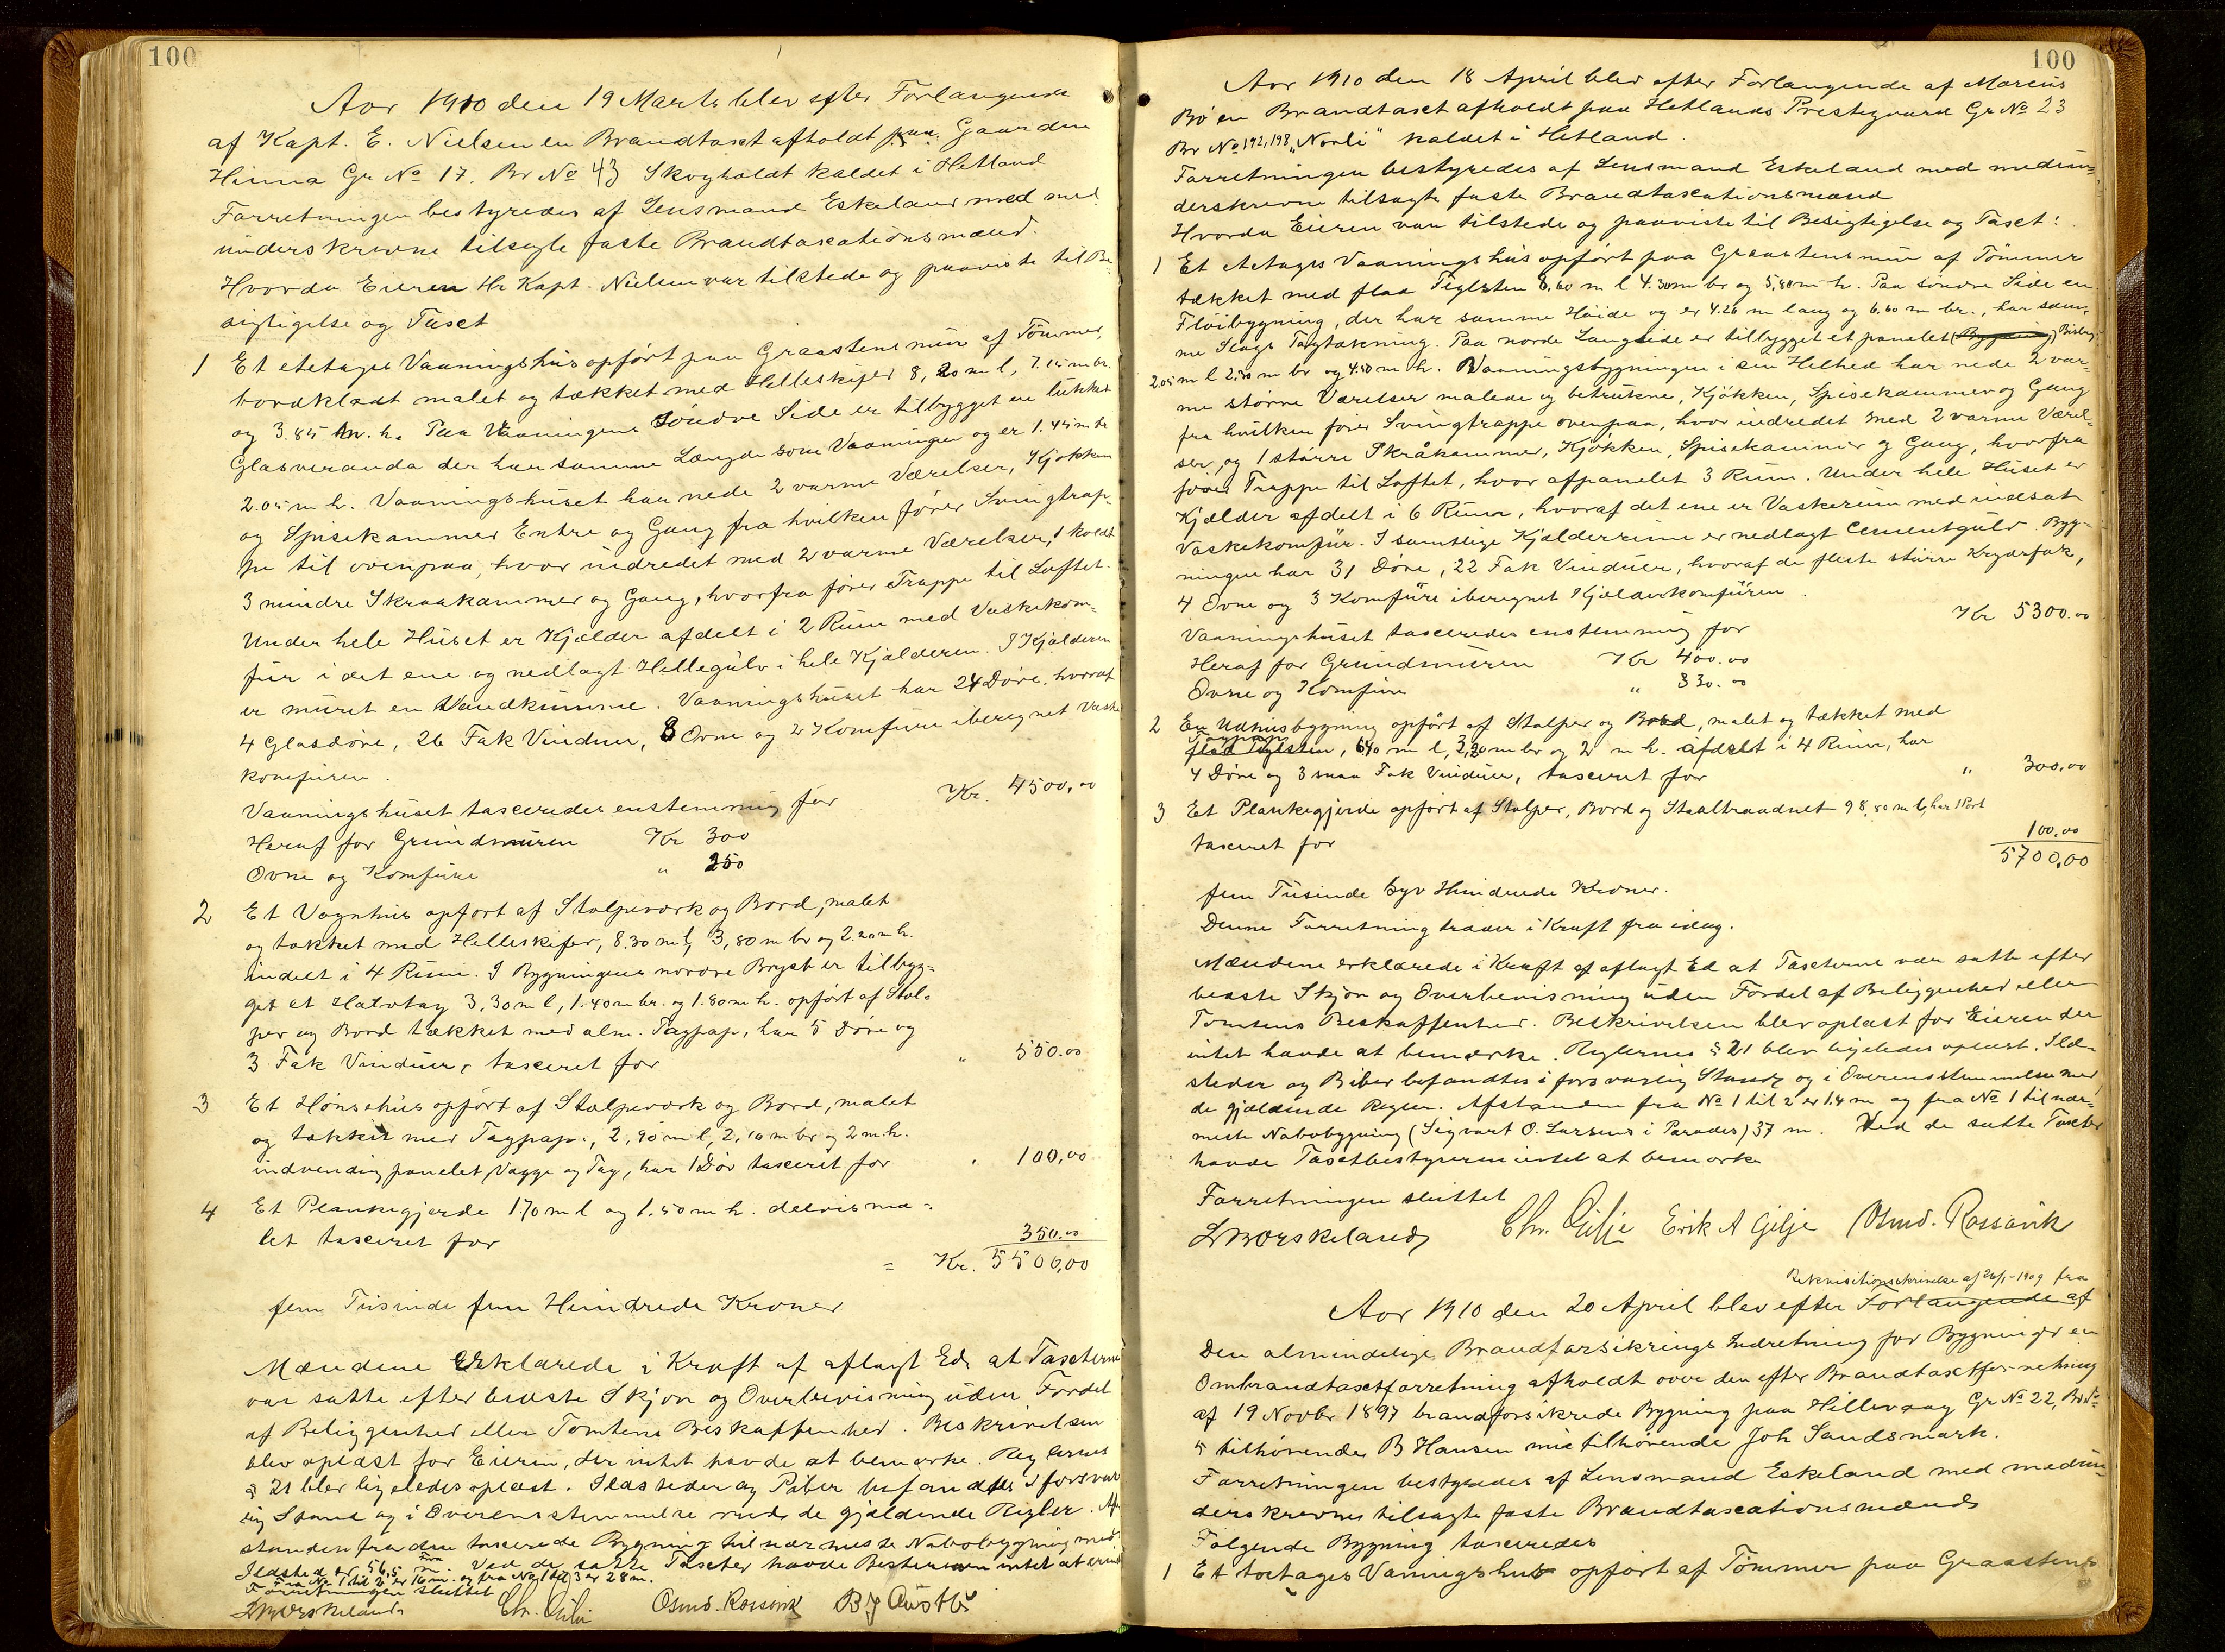 100
Aar 1910 den 19 Marts blev efter Forlangende
af Kapt. E. Nielsen en Brandtaxt afholdt paa Gaarden
Hinna Gr No 17. Br No 43 Skogholdt kaldet i Hetland
Forretningen bestyredes af Lensmand Eskeland med med
underskrevne tilsagte faste Brandtaxationsmænd.
Hvorda Eieren Hr Kapt. Nielsen var tilstede og paaviste til Be
sigtigelse og Taxt
1 Et etetages Vaaningshus opført paa Graastensmur af Tømmer,
bordklædt malet og tækket med Helleskifer 8,20 m l, 7.15 m br.
og 3.85 m. h. Paa Vaaningens Søndre Side er tilbygget en lukket
Glasveranda der har samme Længde som Vaaningen og er 1.45 m br
2.05 m h. Vaaningshuset har nede 2 varme Værelser, Kjøkken
og Spisekammer Entre og Gang fra hvilken fører Svingtrap-
pe til ovenpaa, hvor indredet med 2 varme Værelser, 1 koldt
3 mindre Skraakammer og Gang, hvorfra fører Trappe til Loftet.
Under hele Huset er Kjælder afdelt i 2 Rum med Vaskekom=
fur i det ene og nedlagt Hellegulv i hele Kjælderen. I Kjælderen
er muret en Vandkumme. Vaaningshuset har 24 Døre, hvoraf
4 Glasdøre, 26 Fak Vinduer, 3 Ovne og 2 Komfure iberegnet Vaske
komfuren.
Vaaningshuset taxeredes enstemmig for Kr. 4500,00
Heraf for Grundmuren Kr 300
Ovne og Komfure " 250
2 Et Vognhus opført af Stolpeværk og Bord, malet
og tækket med Helleskifer, 8.30 m l, 3,80 m br og 2.20 m h.
indelt i 4 Rum. I Bygningens nordre Bryst er tilbyg=
get et Halvtag 3.30 m l, 1.40 m br. og 1.80 m h. opført af Stol=
per og Bord tækket med alm. Tagpap, har 5 Døre og
3 Fak Vinduer, taxeret for " 550.00
3 Et Hønsehus opført af Stolpeværk og Bord, malet
og tækket med Tagpap, 2,90 m l, 2,10 m br og 2 m. h.
indvendig panelet Vægge og Tag, har 1 Dør taxeret for " 100,00
4 Et Plankegjerde 170 m l og 1.50 m h. delvis ma=
let taxeret for 350.00
= Kr. 5500,00
fem Tusinde fem Hundrede Kroner
Mændene erklærede i Kraft af aflagt Ed, at Taxterne
var satte efter bedste Skjøn og Overbevisning uden Fordel
af Beliggenhed eller Tomtens Beskaffenhed. Beskrivelsen
blev oplæst for Eieren, der intet havde at bemærke. Reglernes
§ 21 blev ligeledes oplæst. Ildsteder og Piber befandtes i forsvar
lig Stand og i Overensstemmelse med de gjældende Regler. Af
standen fra den taxerede Bygning til nærmeste Nabobygning med
Ildsted er 56,5 m. Ved de satte Taxter havde Bestyreren intet at erind
Fra No 1 til 2 er 16 m. og fra No 1 til 3 er 28 m.
Forretningen sluttet
Chr. Gilje Osmd. Rossavik
100
Aar 1910 den 18 April blev efter Forlangende af Marcus
Bø en Brandtaxt afholdt paa Hetlands Prestegaard Gr No 23
Br No 192,198 "Norli" kaldet i Hetland.
Forretningen bestyredes af Lensmand Eskeland med medun=
derskrevne tilsagte faste Brandtaxationsmænd
Hvorda Eieren var tilstede og paaviste til Besigtigelse og Taxt:
1 Et etetages Vaaningshus opført paa Graastensmur af Tømmer
tækket med flad Teglsten 8,60 m l 4.30 m br og 5,80 m h. Paa søndre Side en
Fløibygning, der har samme Høide og er 4.26 m lang og 6,60 m br., har sam=
me Slags Tagtækning. Paa nordre Langside er tilbygget et panelet (Bygning) Bislag
2.05 m l 2.20 m br og 4.50 m h. Vaaningsbygningen i sin Helhed har nede 2 var=
me større Værelser malede og betrukne, Kjøkken, Spisekammer og Gang
fra hvilken fører Svingtrappe ovenpaa, hvor indredet med 2 varme Værel=
ser, og 1 større Skråkammer, Kjøkken, Spisekammer og Gang, hvorfra
fører Trappe til Loftet, hvor afpanelet 3 Rum. Under hele Huset er
Kjælder afdelt i 6 Rum, hvoraf det ene er Vaskerum med indsat
Vaskekomfur. I samtlige Kjælderrum er nedlagt Cementgulv. Byg-
ningen har 31 Døre, 22 Fak Vinduer, hvoraf de fleste større Krydsfak,
4 Ovne og 3 Komfure iberegnet Kjælderkomfuren.
Vaaningshuset taxeredes enstemmig for Kr 5300.00
Heraf for Grundmuren Kr 400.00
Ovne og Komfure " 330.00
2 En Udhusbygning opført af Stolper og Bord, malet og tækket med
Tagpap
flad Teglsten, 6,40 m l, 3,20 m br og 2 m h. afdelt i 4 Rum, har
4 Døre og 3 smaa Fak Vinduer, taxeret for " 300.00
3 Et Plankegjerde opført af Stolper, Bord og Staaltraadnet 98,80 m l, har 1 Port
taxeret for 100.00
5700,00
fem Tusinde Syv Hundrede Kroner.
Denne Forretning træder i Kraft fra idag.
Mændene erklærede i Kraft af aflagt Ed at Taxterne var satte efter
bedste Skjøn og Overbevisning uden Fordel af Beliggenhed eller
Tomtens Beskaffenhed. Beskrivelsen blev oplæst for Eieren der
intet havde at bemærke. Reglernes § 21 blev ligeledes oplæst. Ild=
steder og Piber befandtes i forsvarlig Stand og i Overensstemmelse med
de gjældende Regler. Afstanden fra No 1 til 2 er 14 m og fra No 1 til nær=
meste Nabobygning (Sigvart O. Larsens i Parades) 37 m. Ved de satte Taxter
havde Taxtbestyreren intet at bemærke
Forretningen sluttet
Chr. Gilje Erik A Gilje Osmd. Rossavik
Rekvisitionsskrivelse af 26/1-1909 fra
Aar 1910 den 20 April blev efter Forlangende af
Den almindelige Brandforsikrings Indretning for Bygninger en
Ombrandtaxtforretning afholdt over den efter Brandtaxtforretning
af 19 Novbr 1897 brandforsikrede Bygning paa Hillevaag Gr No 22, Br No
5 tilhørende B Hansen nu tilhørende Joh Sandsmark.
Forretningen bestyredes af Lensmand Eskeland med medun=
derskrevne tilsagte faste Brandtaxationsmænd
Følgende Bygning taxeredes
1 Et toetages Vaningshus opført af Tømmer paa Graastens